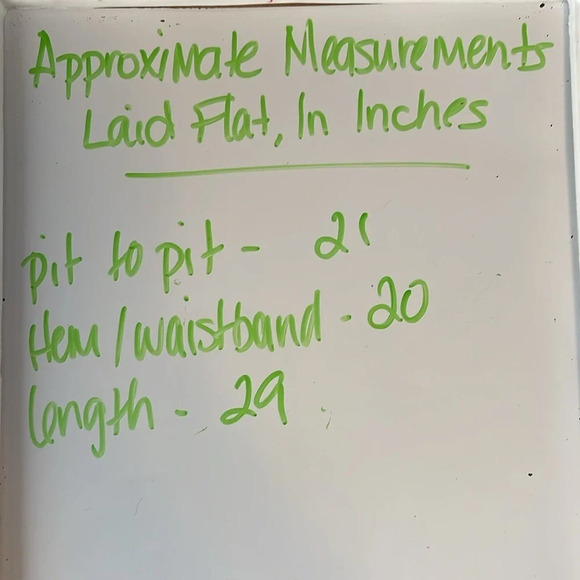 Approximate Measurements
Laid Flat, In Inches
pit to pit - 21
Hem/waistband - 20
length - 29